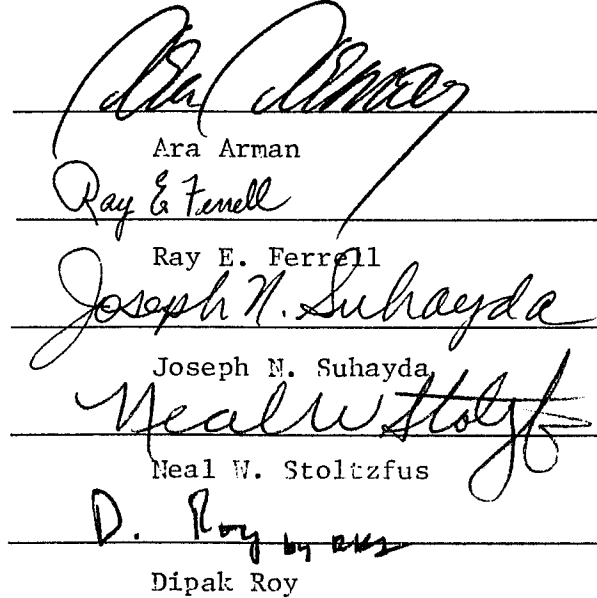 Ara Arman
Ara Arman
Ray E Ferrell
Ray E. Ferrell
Joseph N. Suhayda
Joseph N. Suhayda
Neal W Stoltzfus
Neal W. Stoltzfus
D. Roy by
Dipak Roy